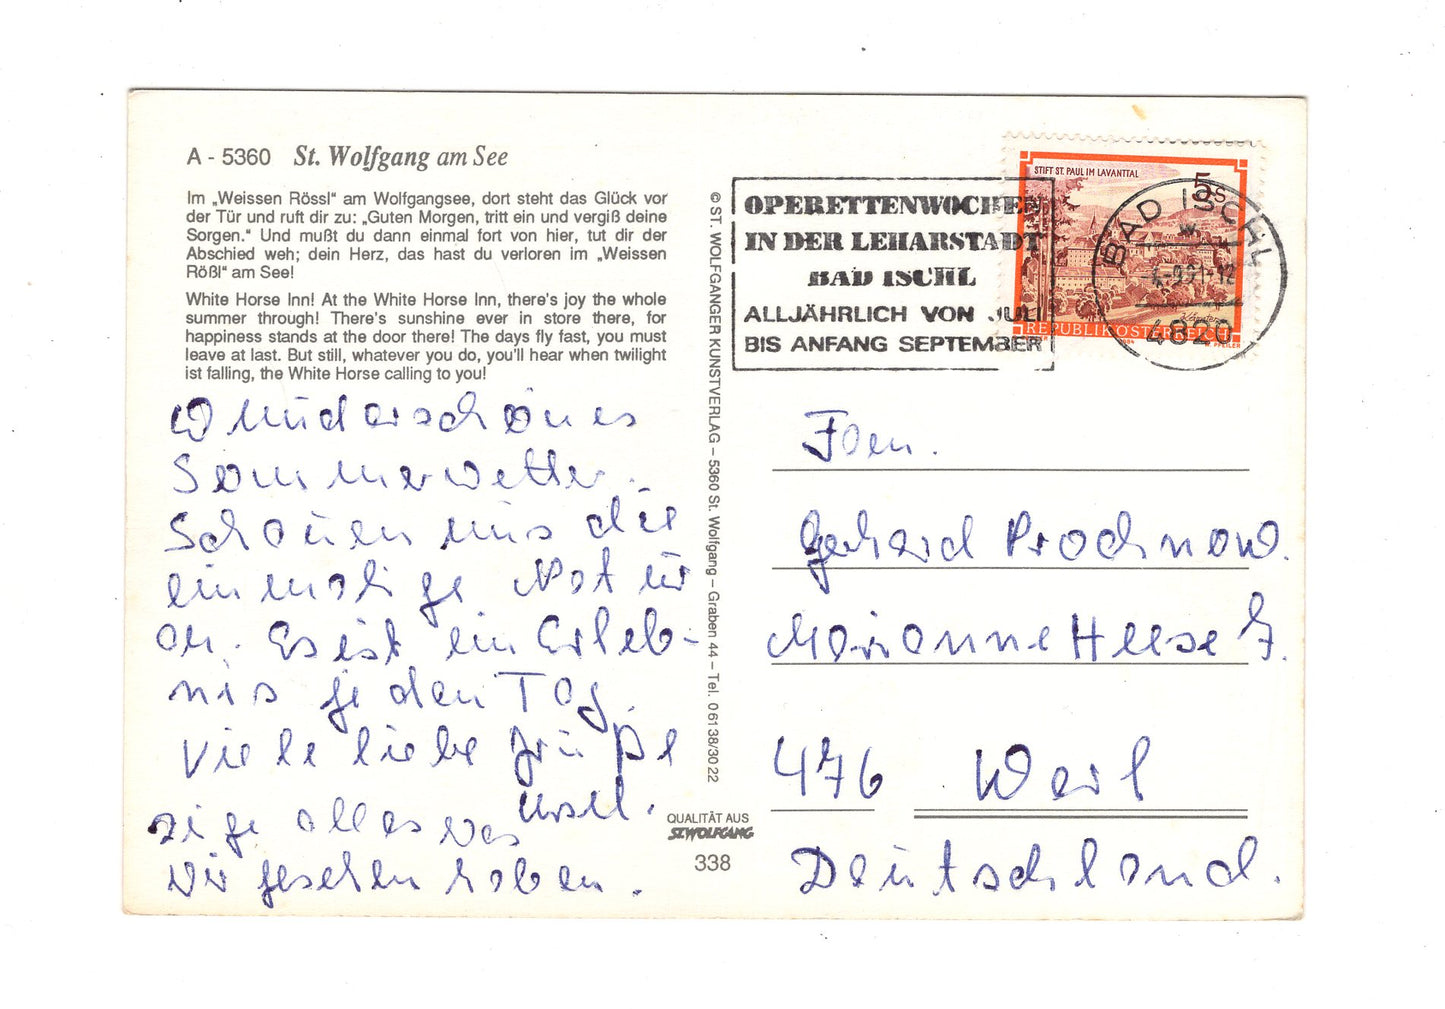 A - 5360 St. Wolfgang am See
Im „Weissen Rössl" am Wolfgangsee, dort steht das Glück vor
der Tür und ruft dir zu: „Guten Morgen, tritt ein und vergiß deine
Sorgen." Und mußt du dann einmal fort von hier, tut dir der
Abschied weh; dein Herz, das hast du verloren im „Weissen
Rößl" am See!
White Horse Inn! At the White Horse Inn, there's joy the whole
summer through! There's sunshine ever in store there, for
happiness stands at the door there! The days fly fast, you must
leave at last. But still, whatever you do, you'll hear when twilight
ist falling, the White Horse calling to you!
Wunderschönes
Sommerwetter.
Schauen uns die
einmalige Natur
an. Es ist ein Erleb-
nis jeden Tag.
Viele liebe Grüße
Ursel.
zige alles was
wir gesehen haben.
© ST. WOLFGANGER KUNSTVERLAG – 5360 St. Wolfgang – Graben 44 – Tel. 06138/3022
QUALITÄT AUS
ST.WOLFGANG
338
OPERETTENWOCHEN
IN DER LEHARSTADT
BAD ISCHL
ALLJÄHRLICH VON JULI
BIS ANFANG SEPTEMBER
STIFT ST. PAUL IM LAVANTTAL
5 S
Kärnten
REPUBLIK ÖSTERREICH
PFEILER
BAD ISCHL
4820
Gerhard Prochnow.
Marianne Heese
476 Werl
Deutschland.